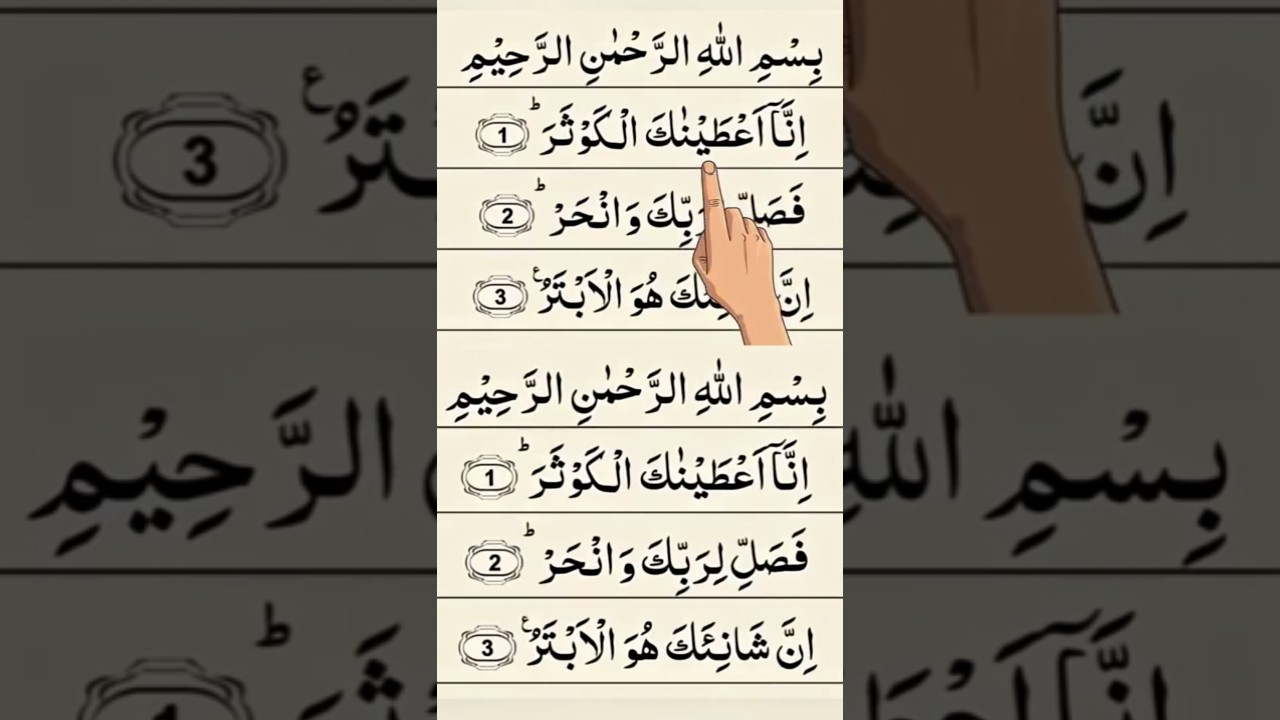 بِسْمِ اللهِ الرَّحْمٰنِ الرَّحِيْمِ
اِنَّاۤ اَعْطَيْنٰكَ الْكَوْثَرَ ؕ 1
فَصَلِّ لِرَبِّكَ وَ انْحَرْ ؕ 2
اِنَّ هُوَ الْاَبْتَرُ ۧ 3
بِسْمِ اللهِ الرَّحْمٰنِ الرَّحِيْمِ
اِنَّاۤ اَعْطَيْنٰكَ الْكَوْثَرَ ؕ 1
فَصَلِّ لِرَبِّكَ وَ انْحَرْ ؕ 2
اِنَّ شَانِئَكَ هُوَ الْاَبْتَرُ ۧ 3